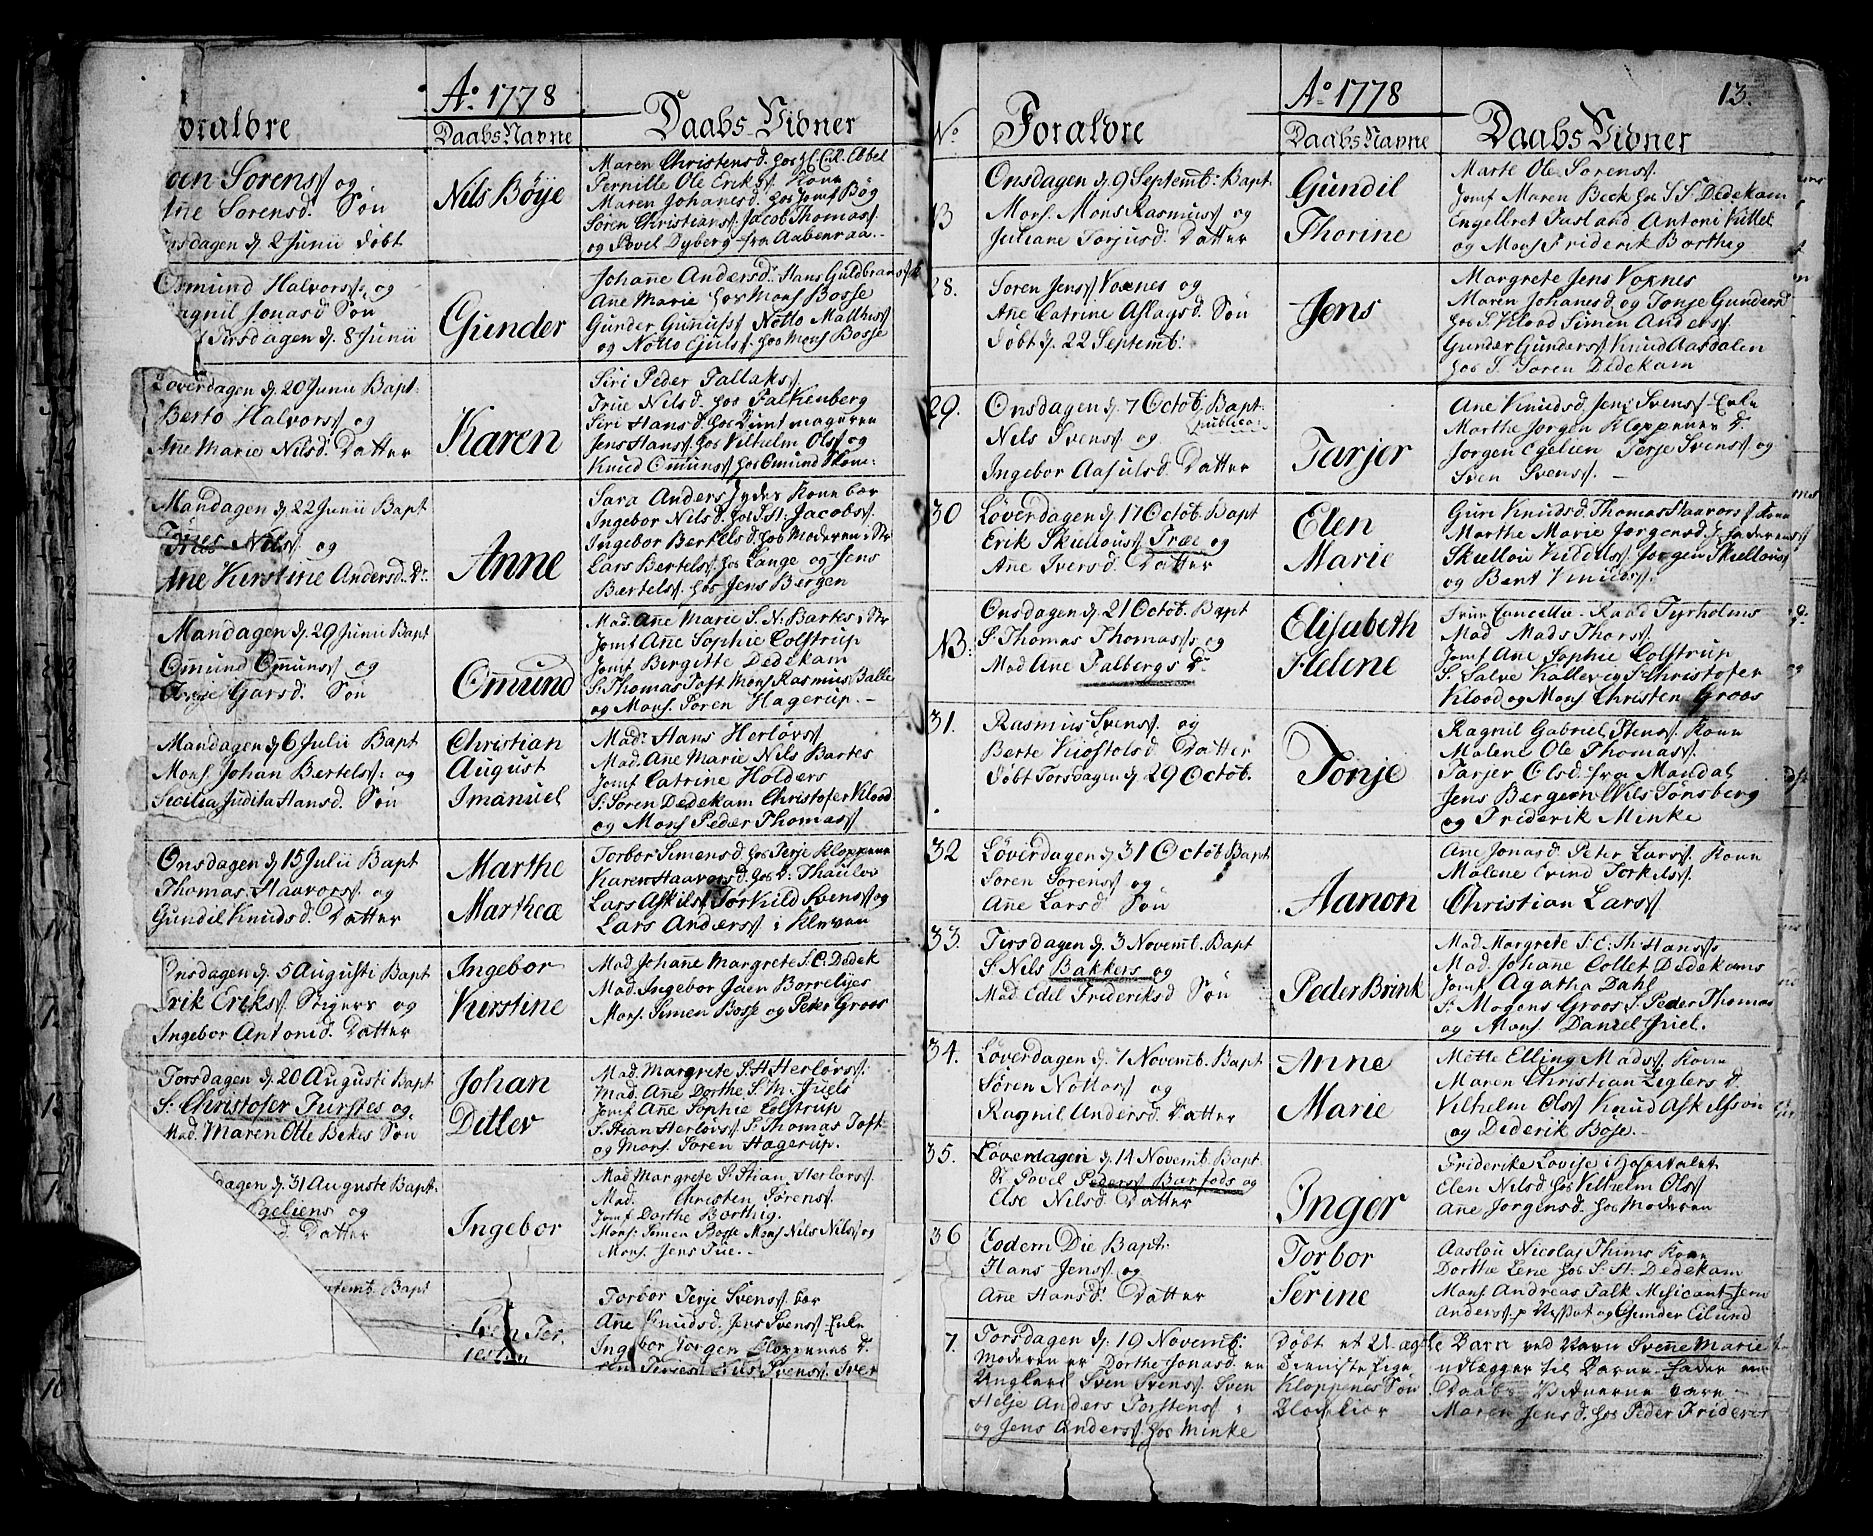 Ao 1778
oraldre
Daabs Navne
Daabs Vidner
oen Sørensf og
Añe Sørensd. Søn
sdagen d. 2 Junii døbt
Nils Böye
Maren Christensd. hos
Pernille Ole Eriksf Kone
Maren Johansd. hos Jomf Bög
Søren Christiansf Jacob Thomasf.
og Povel Dyberg fra Aabenraa.
Omund Halvorsf. og
Jonasd Søn
Tirsdagen d. 8 Junii
Gunder
Johañe Andersd. Hans Guldbransf
Ane Marie hos Monf Bosse
Gunder Gunusf Notto Mathisf
og Notto hos Monf Bosse
Løverdagen d. 20 Junii Bapt.
Halvorsf og
Ane Marie Nilsd. Datter
Karen
Siri Peder Tallaksf
True Nilsd. hos Falkenberg
Siri Hansd. hos
Jens Hansf. hos Vilhelm Olsf og
Knud Omunsf hos Omund
Mandagen d. 22 Junii Bapt
Nilsf og
Ane Kirstine Andersd. Dr.
Anne
Sara Anders Jydes Kone bær
Ingebor Nilsd. hos St. Jacobsf
Ingebor Bertelsd. hos Moderen i Str
Lars Bertelsf. hos Lange og Jens
Bertelsf. hos Jens Bergen
Mandagen d. 29 Junii Bapt
Omund Omunsf og
Garsd. Søn
Omund
Mad. Ane Marie S. N. Bartes i Str
Jomf Añe Sophie Colstrup
Jomf Birgitte Dedekam
Sr. Thomas Toft Monf Rasmus Balle
og Monf. Søren Hagerup.
Mandagen d. 6 Julii Bapt
Monf. Johan Bertelsf. og
Secilia Judita Hansd. Søn
Christian
August
Imanuel
Mad. Hans Herlovsf.
Mad. Ane Marie Nils Bartes
Jomf Catrine Holders
S. Søren Dedekam Christofer Klood
og Monf Peder Thomasf
Onsdagen d. 15 Julii Bapt
Thomas Haavorsf. og
Gundil Knudsd. Datter
Marthe
Marthea
Torbor Simensd. hos Terje Kloppene
Karen Haavorsd. hos Dr. Thaulov
Lars Askilsf Torkild Svensf og
Lars Andersf i Kleven
Onsdagen d. 5 Augusti Bapt
Erik Eriksf. Stigers og
Ingebor Antonid. Datter
Ingebor
Kirstine
Mad. Johañe Margrete S. C. Dedek
Mad. Ingebor Jaen Borrelijes
Monf. Simen Bosse og Peter Groos
Torsdagen d. 20 Augusti Bapt
S. Christofer Turstes og
Mad. Maren Olle Bekes Søn
Johan
Detlev
Mad Margrete S. H Herlovs.
Mad. Añe Dorthe S. M. Juels
Jomf. Añe Sophie Colstrup
S. Stian Herlovsf S. Thomas Toft
og Monf. Søren Hagerup.
dagen d. 31 Auguste Bapt.
Egeliens og
d Datter
Ingebor
Mad Margrete S. Stian Herlovsf.
Mad. Christen Sørensf.
Jomf Dorthe Borthig.
Monf. Simen Bosse Monf Nils Nilsf og
Monf. Jens Tue.
ptemb. Bapt
Sven Ter
jesøn
Torbor Terje Svensf bær
Ane Knudsd. Jens Svensf. Enke
Ingebor Jørgen Kloppenes D.
Nils Svensf. Sver

13.
Ao 1778
No
Foraldre
Daabs Navne
Daabs Vidner
Onsdagen d. 9 Septemb: Bapt.
NB
Monf. Mons Rasmusf og
Juliane Torjusd. Datter
Gundil
Thorine
Marte Ole Sørensf.
Jomf Maren Beck hos S S. Dedekam
Engelbret Antoni Kittel
og Monf Friderik Borthig
28.
Søren Jensf Voxnes og
Ane Catrine Aslagsd. Søn
døbt d. 22 Septemb:
Jens
Margrete Jens Voxnes
Maren Johansd og Tonje Gundersd
hos S. Klood Simen Andersf.
Gunder Gundersf Knud Aasdalen
hos S. Søren Dedekam
29.
Onsdagen d. 7 Octob. Bapt.
publice
Nils Svensf og
Ingebor Aasulsd. Datter
Tarjer
Ane Knudsd. Jens Svensf. Enke
Marthe Jørgen Kloppenes D.
Jørgen Egelien Terje Svensf og
Sven Svensf.
30
Løverdagen d. 17 Octob. Bapt
Erik Skullousf Træe og
Ane Iversd. Datter
Elen
Marie
Guri Knudsd. Thomas Haavorsf Kone
Marthe Marie Jørgensd.
Skullou Jørgen Skullousf
og Bent Knudsf.
Onsdagen d. 21 Octob. Bapt
NB:
S. Thomas Thomasf. og
Mad Ane Falbergs Dr.
Elisabeth
Helene
Fruw Cancellie-Raad Tyrholms
Mad Mads Thorsf.
Jomf Ane Sophie Colstrup
S. Salve Kallevig S. Christofer
Klood og Monf Christen Groos
31.
Rasmus Svensf. og
Berte Kiøstolsd. Datter
døbt Torsdagen d. 29 Octob.
Tonje
Ragnil Gabriel Stensf. Kone
Malene Ole Thomasf.
Tarjer Olsd. fra Mandal
Jens Bergen Nils Tønsberg
og Friderik Minke
32
Løverdagen d. 31 Octob. Bapt
Søren Sørensf og
Añe Larsd Søn
Aanon
Ane Jonasd. Peter Larsf. Kone
Malene Evind Torkilsf.
Christian Larsf
33.
Tirsdagen d. 3 Novemb. Bapt
S. Nils Bakkers og
Mad Edel Frideriksd Søn
Peder Brink
Mad Margrete S. C. Th. Hansf.
Mad. Johañe Collet Dedekams
Jomf Agatha Dahl
S. Mogens Groos S. Peder Thomas
og Monf Daniel Juel.
34.
Løverdagen d. 7 Novemb. Bapt
Søren Nottorsf og
Ragnil Andersd. Datter
Anne
Marie
Mette Elling Madsf. Kone
Maren Christian Zeglers D.
Vilhelm Olsf Knud Askelssøn
og Diderik Bose.
35.
Løverdagen d. 14 Novemb. Bapt.
Povel Pedersf Barfods og
Else Nilsd. Datter
Inger
Friderike Lovise i Hospitalet
Elen Nilsd hos Vilhelm Olsf
Ane Jørgensd. hos Moderen
36
Eodem Die Bapt.
Hans Jensf og
Añe Hansd. Datter
Torbor
Serine
Aaslou Nicolas Thims Kone
Dorthe Lene hos S. St. Dedekam
Monf Andreas Falk Musicant Jern
Andersf p og Gunder Eilund
7.
Torsdagen d. 19 Novemb: døbt et Uægte Barn ved Navn Sveñe Marie
Moderen er Dorthe Jonasd. en Tieniste Pige udlægger til Barne-Fader en
Ungkarl Sven Svensf. Sven Kloppenes Søn Daabs Vidnerne vare
Helje Anders Torstensf i Maren Jensd. hos Peder Frideric
og Jens Andersf. hos Minke